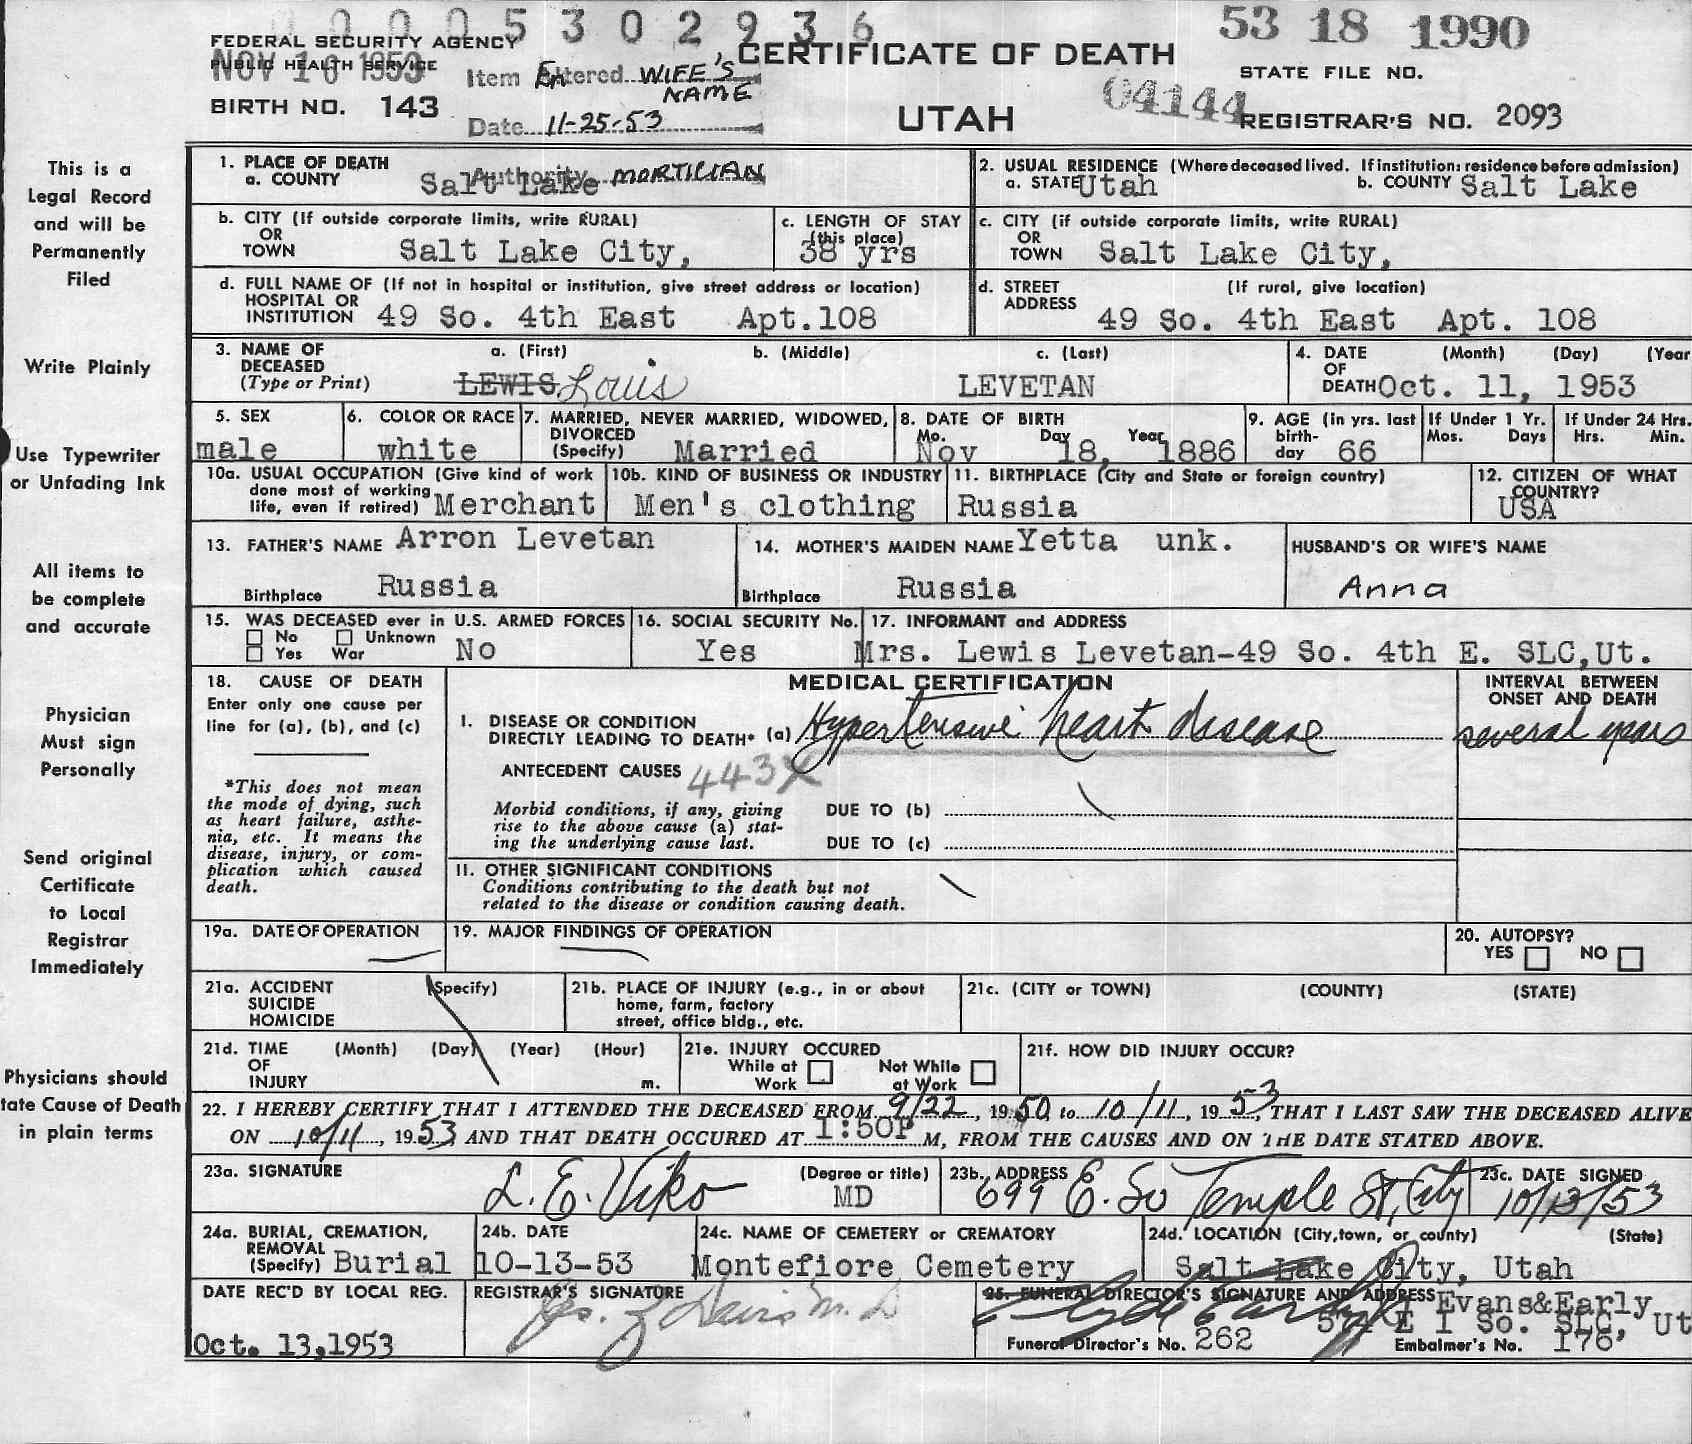 00005302936
53 18 1990
FEDERAL SECURITY AGENCY
PUBLIC HEALTH SERVICE
NOV 16 1953
Item Entered WIFE'S NAME
CERTIFICATE OF DEATH
STATE FILE NO.
BIRTH NO. 143
Date 11-25-53
UTAH
04144
REGISTRAR'S NO. 2093
Authority MORTICIAN
This is a
Legal Record
and will be
Permanently
Filed
Write Plainly
Use Typewriter
or Unfading Ink
All items to
be complete
and accurate
Physician
Must sign
Personally
Send original
Certificate
to Local
Registrar
Immediately
Physicians should
tate Cause of Death
in plain terms
1. PLACE OF DEATH
a. COUNTY Salt Lake
2. USUAL RESIDENCE (Where deceased lived. If institution: residence before admission)
a. STATE Utah b. COUNTY Salt Lake
b. CITY (If outside corporate limits, write RURAL)
OR
TOWN Salt Lake City,
c. LENGTH OF STAY
(this place)
38 yrs
c. CITY (if outside corporate limits, write RURAL)
OR
TOWN Salt Lake City,
d. FULL NAME OF (If not in hospital or institution, give street address or location)
HOSPITAL OR
INSTITUTION 49 So. 4th East Apt.108
d. STREET (If rural, give location)
ADDRESS
49 So. 4th East Apt. 108
3. NAME OF a. (First) b. (Middle) c. (Last)
DECEASED
(Type or Print) LEWIS Louis LEVETAN
4. DATE (Month) (Day) (Year
OF
DEATH Oct. 11, 1953
5. SEX
male
6. COLOR OR RACE
white
7. MARRIED, NEVER MARRIED, WIDOWED,
DIVORCED
(Specify) Married
8. DATE OF BIRTH
Mo. Day Year
Nov 18, 1886
9. AGE (in yrs. last
birth-
day 66
If Under 1 Yr.
Mos. Days
If Under 24 Hrs.
Hrs. Min.
10a. USUAL OCCUPATION (Give kind of work
done most of working
life, even if retired) Merchant
10b. KIND OF BUSINESS OR INDUSTRY
Men's clothing
11. BIRTHPLACE (City and State or foreign country)
Russia
12. CITIZEN OF WHAT
COUNTRY?
USA
13. FATHER'S NAME Arron Levetan
Birthplace Russia
14. MOTHER'S MAIDEN NAME Yetta unk.
Birthplace Russia
HUSBAND'S OR WIFE'S NAME
Anna
15. WAS DECEASED ever in U.S. ARMED FORCES
No Unknown
Yes War No
16. SOCIAL SECURITY No.
Yes
17. INFORMANT and ADDRESS
Mrs. Lewis Levetan-49 So. 4th E. SLC,Ut.
18. CAUSE OF DEATH
Enter only one cause per
line for (a), (b), and (c)
*This does not mean
the mode of dying, such
as heart failure, asthe-
nia, etc. It means the
disease, injury, or com-
plication which caused
death.
MEDICAL CERTIFICATION
INTERVAL BETWEEN
ONSET AND DEATH
I. DISEASE OR CONDITION
DIRECTLY LEADING TO DEATH* (a) Hypertensive heart disease several years
ANTECEDENT CAUSES 443X
Morbid conditions, if any, giving
rise to the above cause (a) stat-
ing the underlying cause last.
DUE TO (b)
DUE TO (c)
II. OTHER SIGNIFICANT CONDITIONS
Conditions contributing to the death but not
related to the disease or condition causing death.
19a. DATE OF OPERATION
19. MAJOR FINDINGS OF OPERATION
20. AUTOPSY?
YES NO
21a. ACCIDENT (Specify)
SUICIDE
HOMICIDE
21b. PLACE OF INJURY (e.g., in or about
home, farm, factory
street, office bldg., etc.
21c. (CITY or TOWN) (COUNTY) (STATE)
21d. TIME (Month) (Day) (Year) (Hour)
OF
INJURY m.
21e. INJURY OCCURED
While at Work Not While at Work
21f. HOW DID INJURY OCCUR?
22. I HEREBY CERTIFY THAT I ATTENDED THE DECEASED FROM 9/22, 1950, to 10/11, 1953, THAT I LAST SAW THE DECEASED ALIVE
ON 10/11, 1953 AND THAT DEATH OCCURED AT 1:50P M, FROM THE CAUSES AND ON THE DATE STATED ABOVE.
23a. SIGNATURE (Degree or title)
L. E. Viko MD
23b. ADDRESS
699 E. So Temple St, City
23c. DATE SIGNED
10/13/53
24a. BURIAL, CREMATION,
REMOVAL
(Specify) Burial
24b. DATE
10-13-53
24c. NAME OF CEMETERY or CREMATORY
Montefiore Cemetery
24d. LOCATION (City, town, or county) (State)
Salt Lake City, Utah
DATE REC'D BY LOCAL REG.
Oct. 13,1953
REGISTRAR'S SIGNATURE
25. FUNERAL DIRECTOR'S SIGNATURE AND ADDRESS
Evans&Early
574 E 1 So. SLC, Ut
Funeral Director's No. 262 Embalmer's No. 176